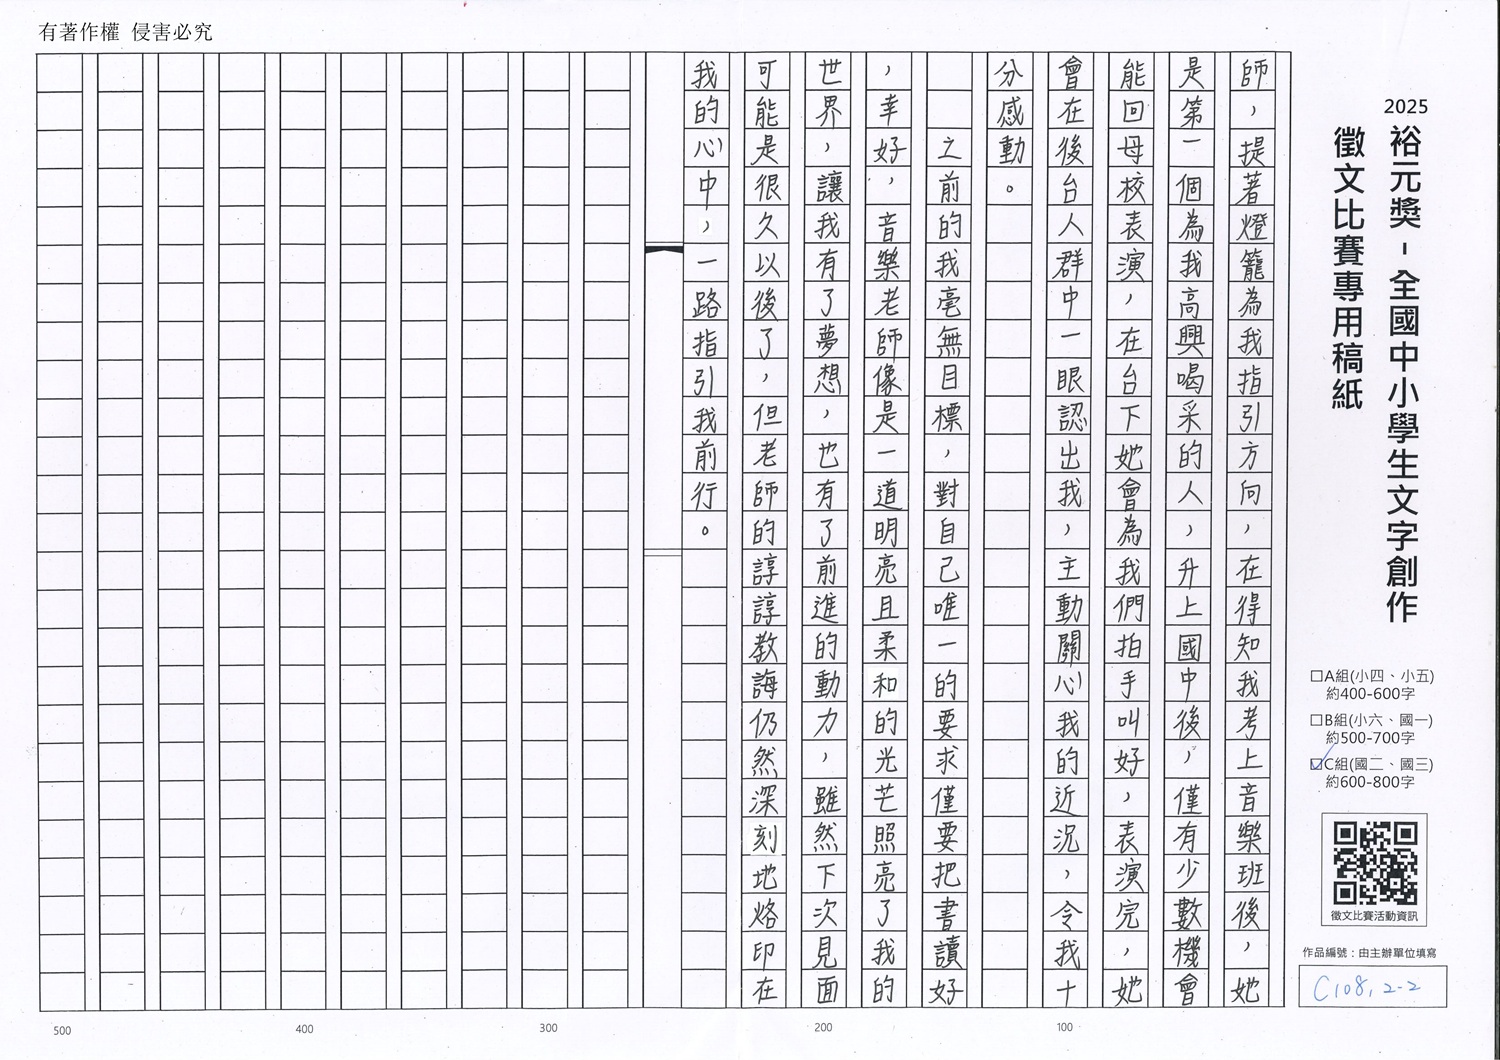 有著作權 侵害必究
2025
裕元獎-全國中小學生文字創作
徵文比賽專用稿紙
□A組(小四、小五)
約400-600字
□B組(小六、國一)
約500-700字
☑C組(國二、國三)
約600-800字
徵文比賽活動資訊
作品編號：由主辦單位填寫
C108, 2-2
師，提著燈籠為我指引方向，在得知我考上音樂班後，她
是第一個為我高興喝采的人，升上國中後，僅有少數機會
能回母校表演，在台下她會為我們拍手叫好，表演完，她
會在後台人群中一眼認出我，主動關心我的近況，令我十
分感動。
之前的我毫無目標，對自己唯一的要求僅要把書讀好
，幸好，音樂老師像是一道明亮且柔和的光芒照亮了我的
世界，讓我有了夢想，也有了前進的動力，雖然下次見面
可能是很久以後了，但老師的諄諄教誨仍然深刻地烙印在
我的心中，一路指引我前行。
100
200
300
400
500